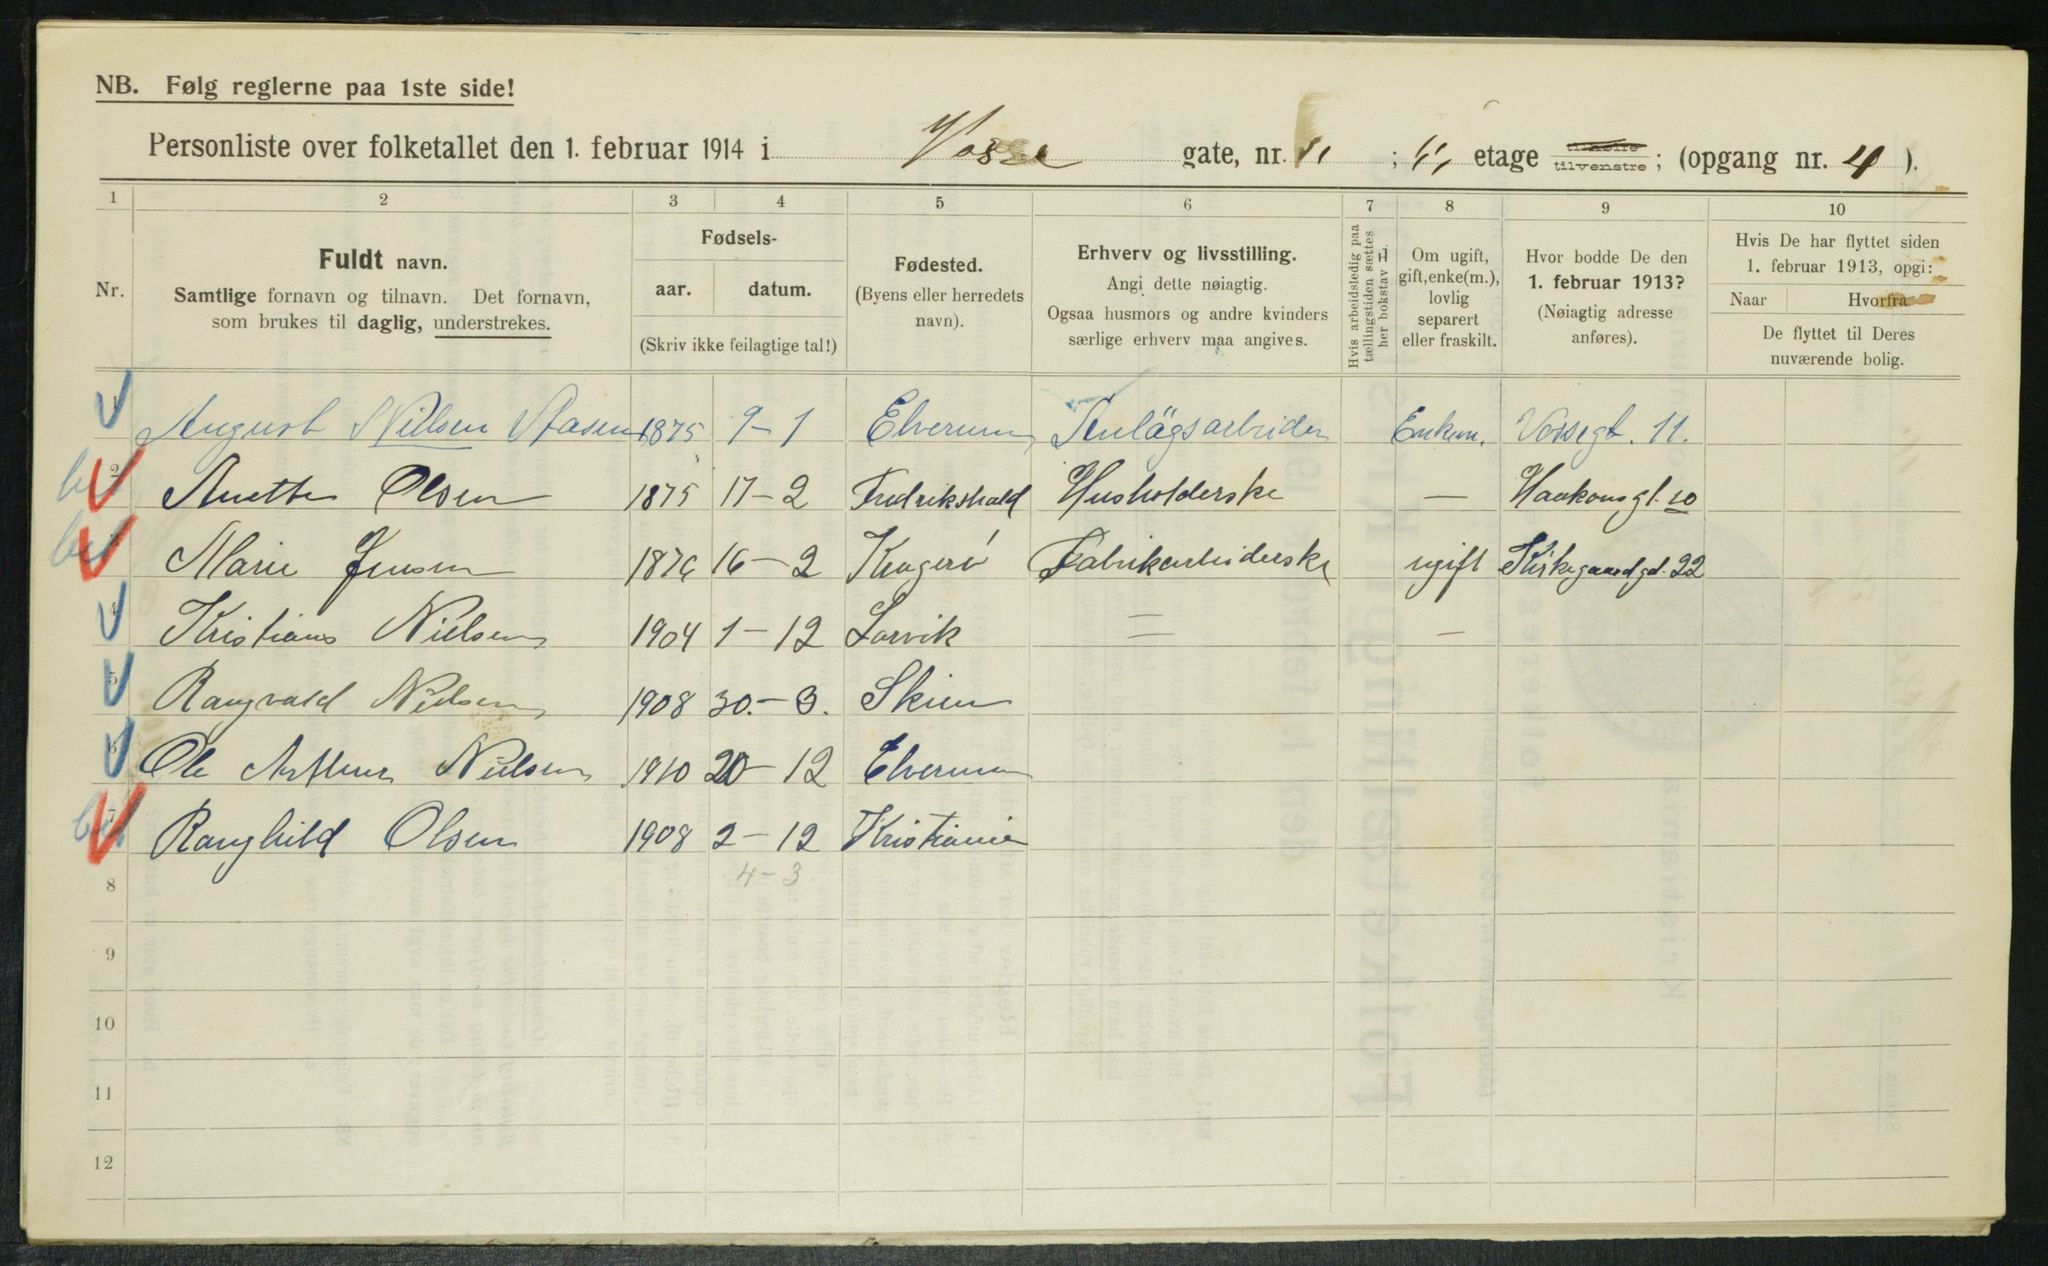 NB. Følg reglerne paa 1ste side!
Personliste over folketallet den 1. februar 1914 i Vosse gate, nr. 11 ; etage tilhøire tilvenstre ; (opgang nr. 4 ).
1 2 3 4 5 6 7 8 9 10
Nr.
Fuldt navn.
Samtlige fornavn og tilnavn. Det fornavn,
som brukes til daglig, understrekes.
Fødsels-
aar. datum.
(Skriv ikke feilagtige tal!)
Fødested.
(Byens eller herredets
navn).
Erhverv og livsstilling.
Angi dette nøiagtig.
Ogsaa husmors og andre kvinders
særlige erhverv maa angives.
Hvis arbeidsledig paa
tællingstiden sættes
her bokstav L.
Om ugift,
gift, enke(m.),
lovlig
separert
eller fraskilt.
Hvor bodde De den
1. februar 1913?
(Nøiagtig adresse
anføres).
Hvis De har flyttet siden
1. februar 1913, opgi:
Naar Hvorfra
De flyttet til Deres
nuværende bolig.
1 August Nilsen Aasen 1875 9-1 Elverum Anlägsarbeider Enkem. Vossegt. 11.
2 Anette Olsen 1875 17-2 Fredrikshald Husholderske — Haakonsgt. 10
3 Marie Jensen 1876 16-2 Kragerö Fabrikarbeiderske ugift Kirkegaardgd. 22
4 Kristians Nielsen 1904 1-12 Larvik = —
5 Rangvald Nielsen 1908 30.-3. Skien
6 Ole Arthur Nielsen 1910 20-12 Elverum
7 Ranghild Olsen 1908 2-12 Kristiania
8 4-3
9
10
11
12